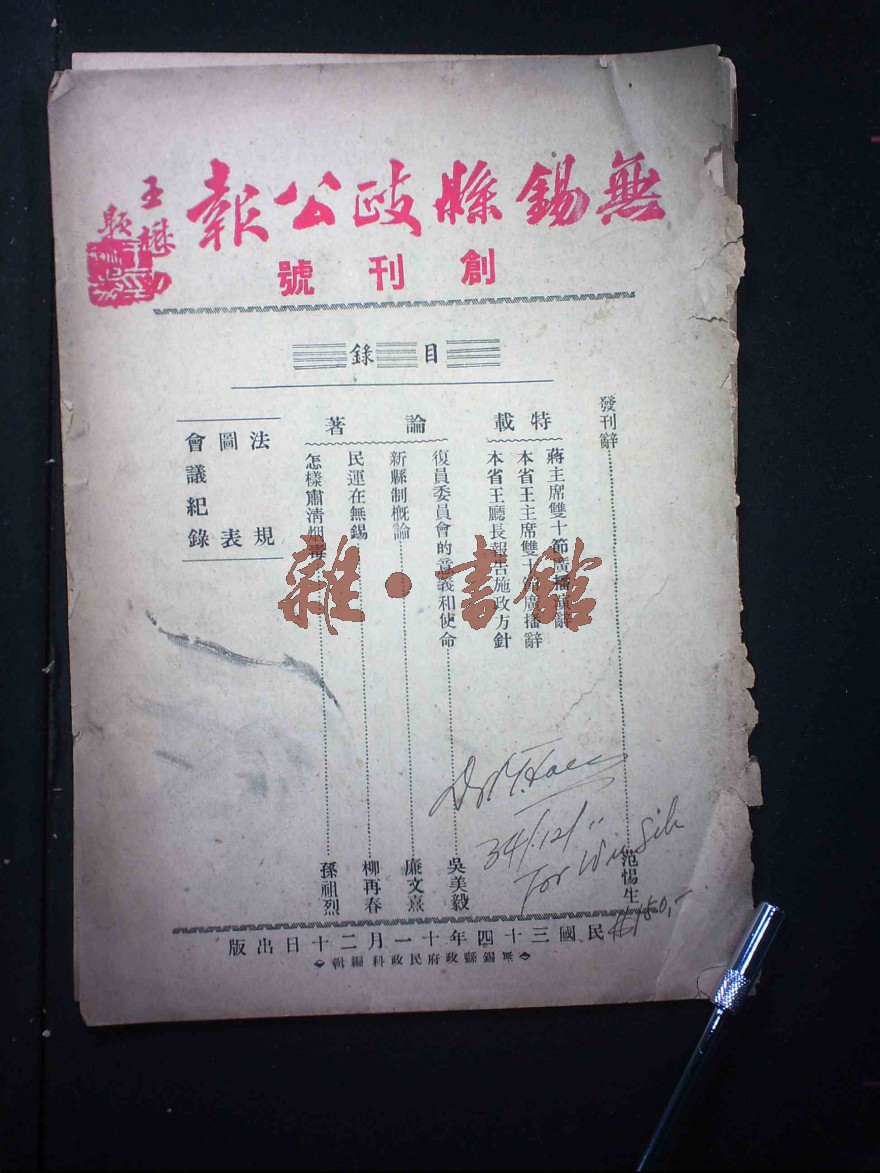 無錫縣政公報
創刊號
王懋功
題
目錄
發刊辭 范惕生
特載
蔣主席雙十節廣播演辭
本省王主席雙十節廣播辭
本省王廳長報告施政方針
論著
復員委員會的意義和使命 吳美毅
新縣制概論 廉文熹
民運在無錫 柳再春
怎樣肅清烟毒 孫祖烈
法規
圖表
會議紀錄
34/12/11
For Wusih
民國三十四年十一月二十日出版
無錫縣政府民政科編輯
雜·書館